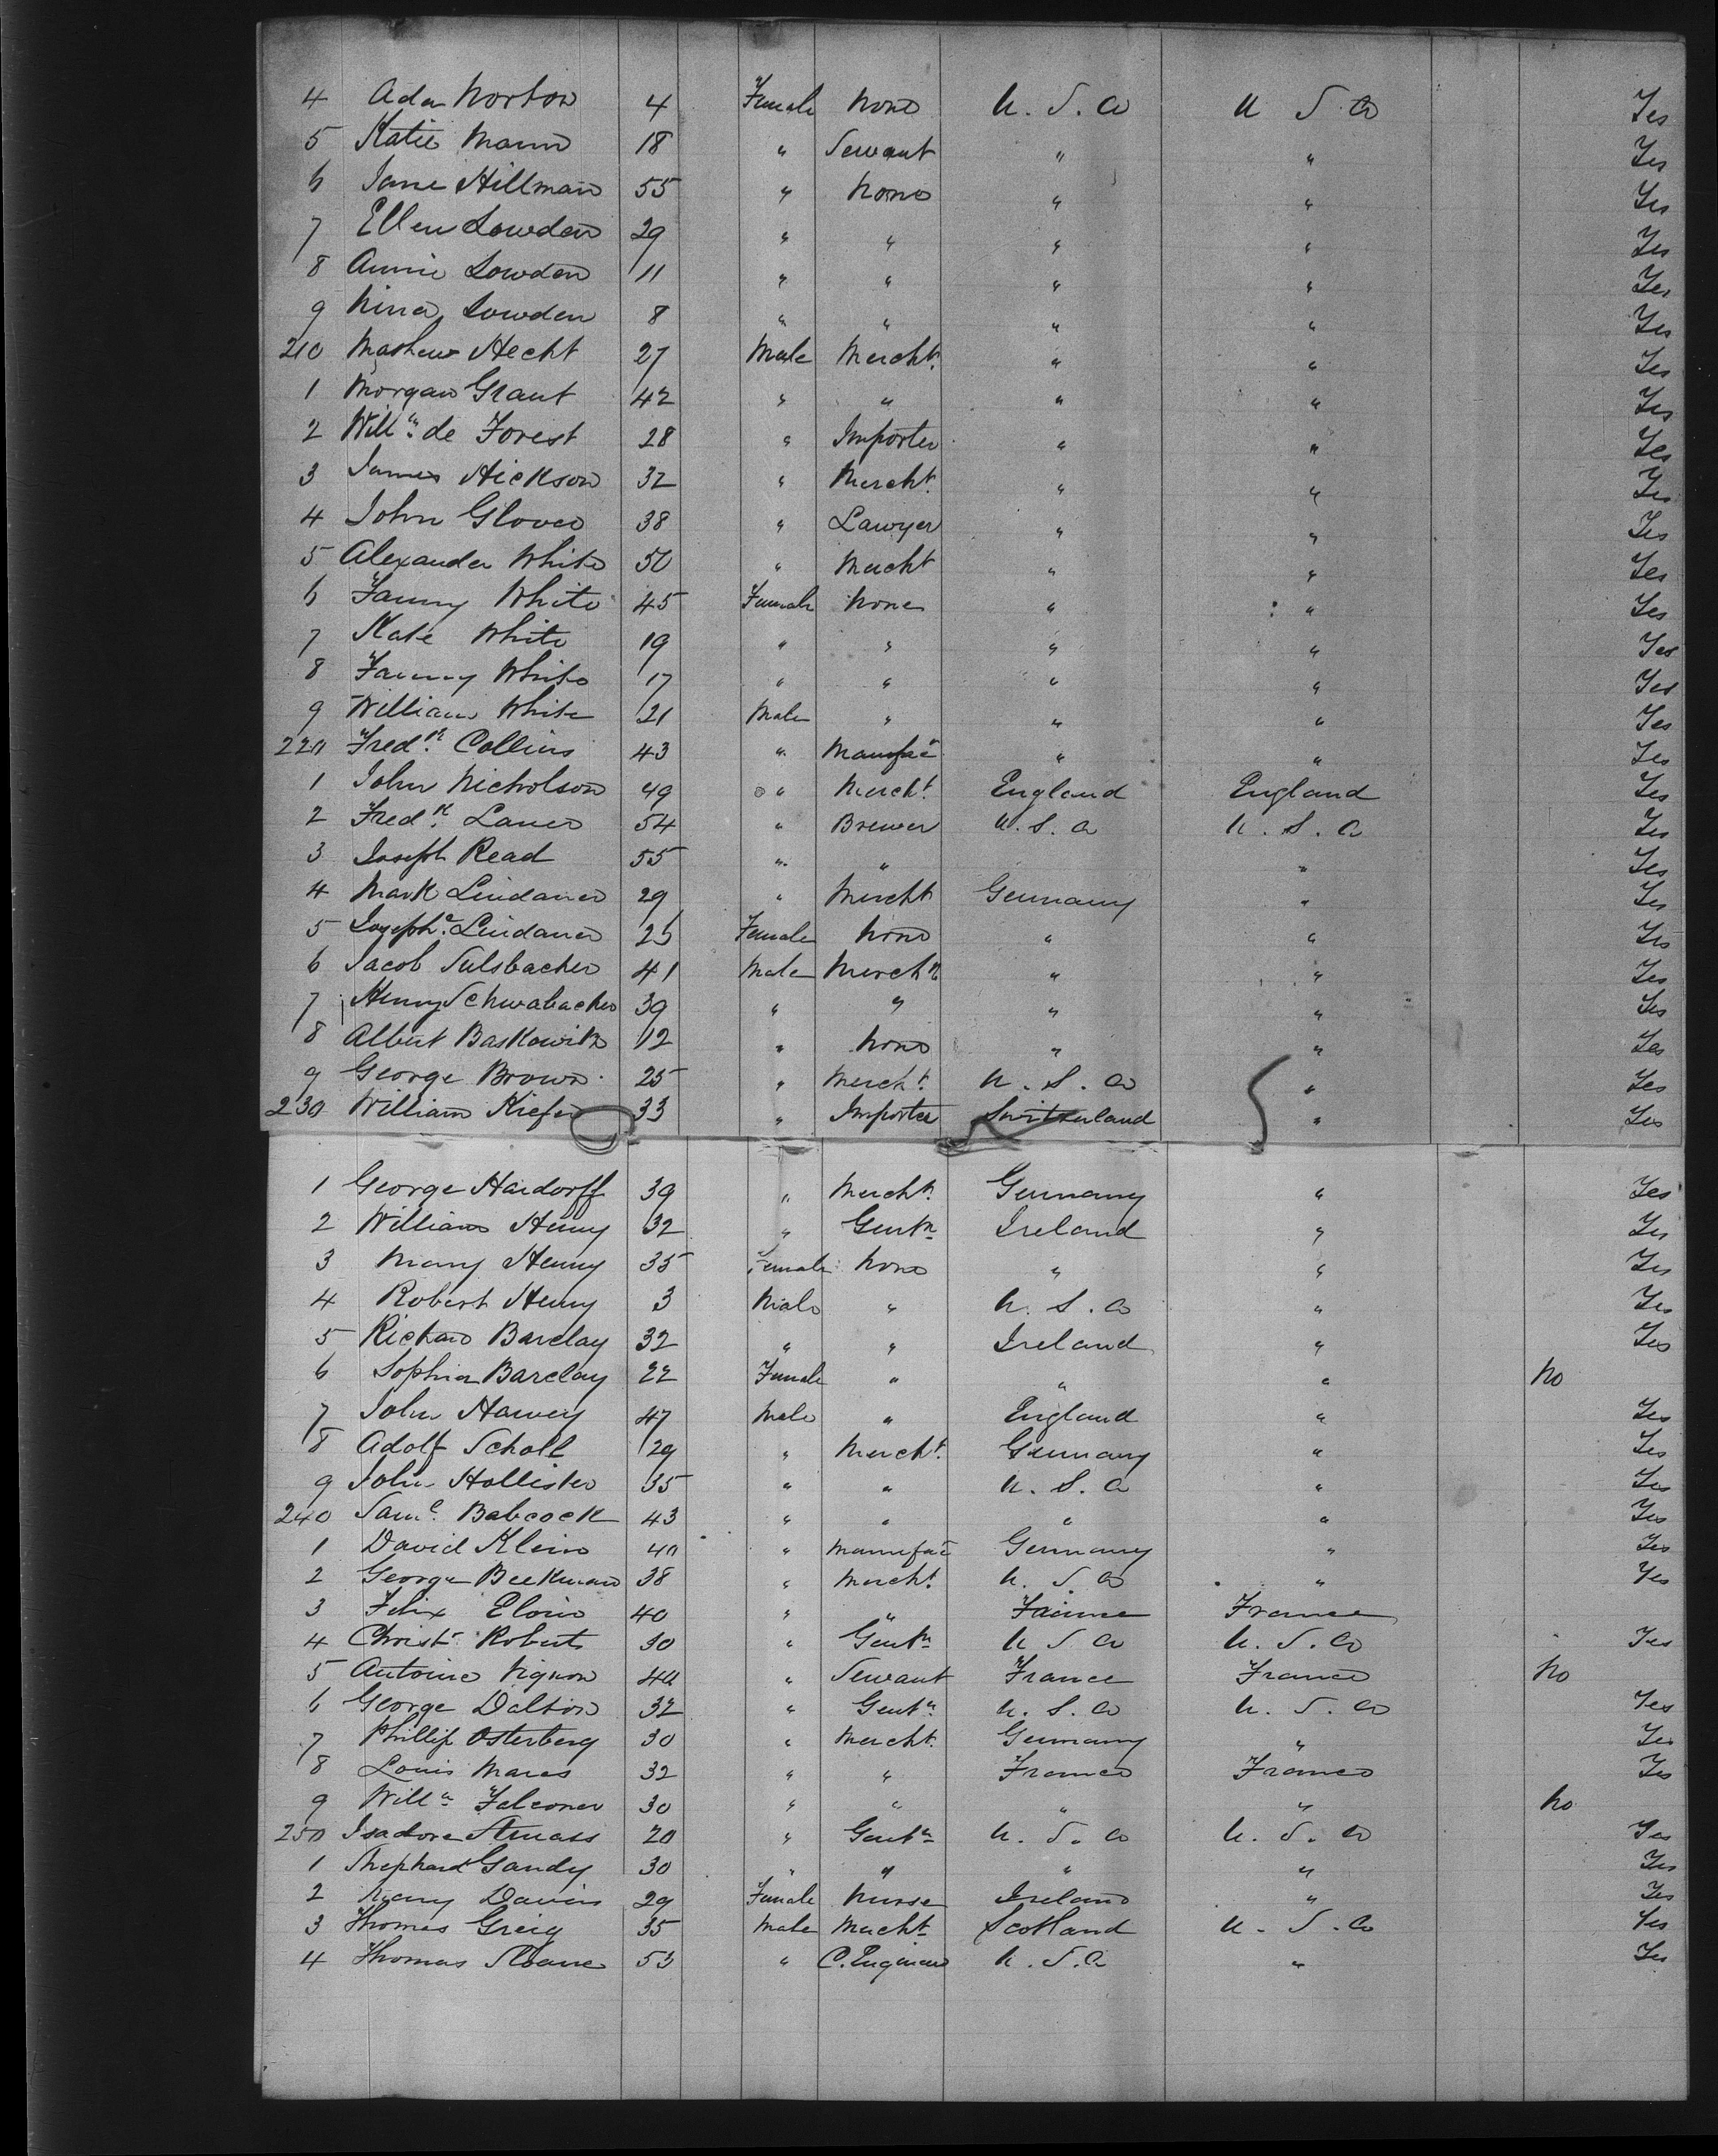 4 Ada Norton 4 Female None U.S.A U S A Yes
5 Katie Mann 18 " Servant " " Yes
6 Jane Hillman 55 " None " " Yes
7 Ellen Lowden 29 " " " " Yes
8 Annie Lowden 11 " " " " Yes
9 Nina Lowden 8 " " " " Yes
210 Mathew Hecht 27 Male Mercht. " " Yes
1 Morgan Grant 42 " " " " Yes
2 Willm de Forest 28 " Importer " " Yes
3 James Hickson 32 " Mercht. " " Yes
4 John Glover 38 " Lawyer " " Yes
5 Alexander White 50 " Mercht " " Yes
6 Fanny White 45 Female None " " Yes
7 Kate White 19 " " " " Yes
8 Fanny White 17 " " " " Yes
9 William White 21 Male " " " Yes
220 Fredk. Collins 43 " Manufac " " Yes
1 John Nicholson 49 " Mercht. England England Yes
2 Fredk. Lauer 54 " Brewer U.S.A U.S.A Yes
3 Joseph Read 55 " " " Yes
4 Mark Lindauer 29 " Mercht Germany " Yes
5 Josephe. Lindauer 25 Female None " " Yes
6 Jacob Sulsbacher 41 Male Mercht " " Yes
7 Henry Schwabacher 39 " " " " Yes
8 Albert Baskowitz 12 " None " " Yes
9 George Brown 25 " Mercht. U.S.A " Yes
230 William Kiefer 33 " Importer Switzerland " Yes
1 George Hardorff 39 " Mercht. Germany " Yes
2 William Henry 32 " Gentn Ireland " Yes
3 Mary Henry 35 Female None " " Yes
4 Robert Henry 3 Male " U.S.A " Yes
5 Richard Barclay 32 " " Ireland " Yes
6 Sophia Barclay 22 Female " " " No
7 John Harvey 47 Male " England " Yes
8 Adolf Scholl 29 " Mercht. Germany " Yes
9 John Hollister 35 " " U.S.A " Yes
240 Saml. Babcock 43 " " " " Yes
1 David Klein 40 " Manufac Germany " Yes
2 George Beekman 38 " Mercht. U.S.A " Yes
3 Felix Eloin 40 " " France France
4 Christ. Roberts 30 " Gentn U S A U.S.A Yes
5 Antoine Vignon 44 " Servant France France No
6 George Dalton 32 " Gentn U.S.A U.S.A Yes
7 Phillip Osterberg 30 " Mercht. Germany " Yes
8 Louis Mares 32 " " France France Yes
9 Willm Falconer 30 " " " " No
250 Isadore Strauss 20 " Gentn U.S.A U.S.A Yes
1 Shephard Gandy 30 " " " " Yes
2 Mary Davis 29 Female Nurse Ireland " Yes
3 Thomas Greig 35 Male Mercht Scotland U.S.A Yes
4 Thomas Sloane 53 " C. Engineer U.S.A " Yes